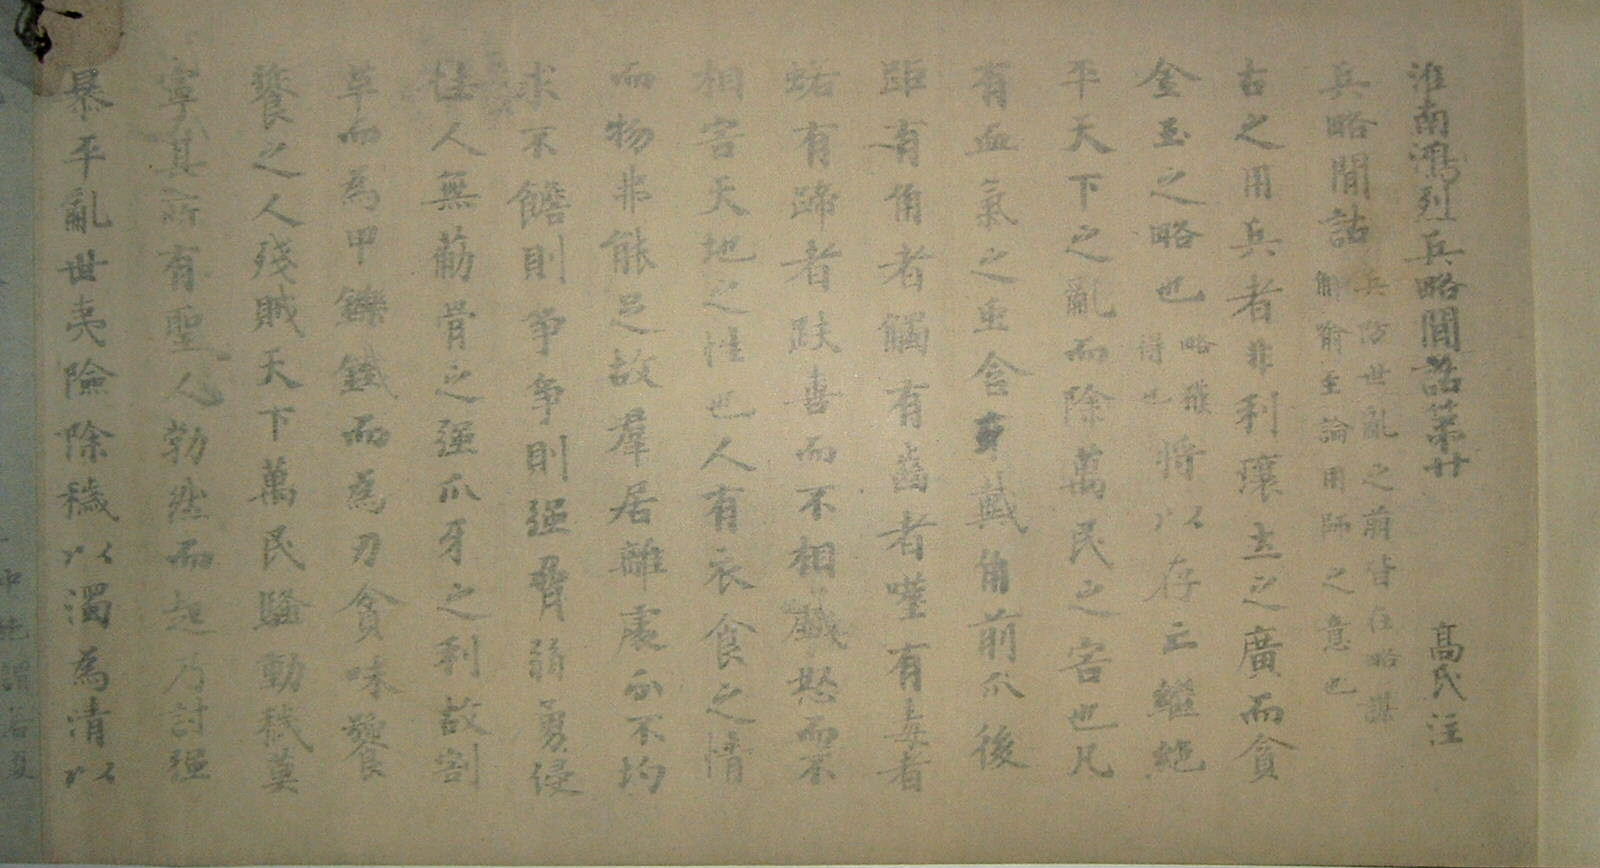 淮南鴻烈兵略閒詁第廿 高氏注
兵略閒詁 兵防世亂之萌皆在略謀
解喻至論用師之意也
古之用兵者非利壤土之廣而貪
金玉之略也 略獲
得也 將以存亡繼絕
平天下之亂而除萬民之害也凡
有血氣之虫含牙戴角前爪後
距有角者觸有齒者噬有毒者
蛞有蹄者趹喜而不相戲怒而不
相害天地之性也人有衣食之情
而物非能足故羣居離處分不均
求不饍則爭爭則强脅弱勇侵
怯人無觔骨之强爪牙之利故割
革而為甲鑠鐵而為刃貪味饕
餮之人殘賊天下萬民騷動穢莫
寧其所有聖人勃然而起乃討强
暴平亂世夷險除穢以濁為清以